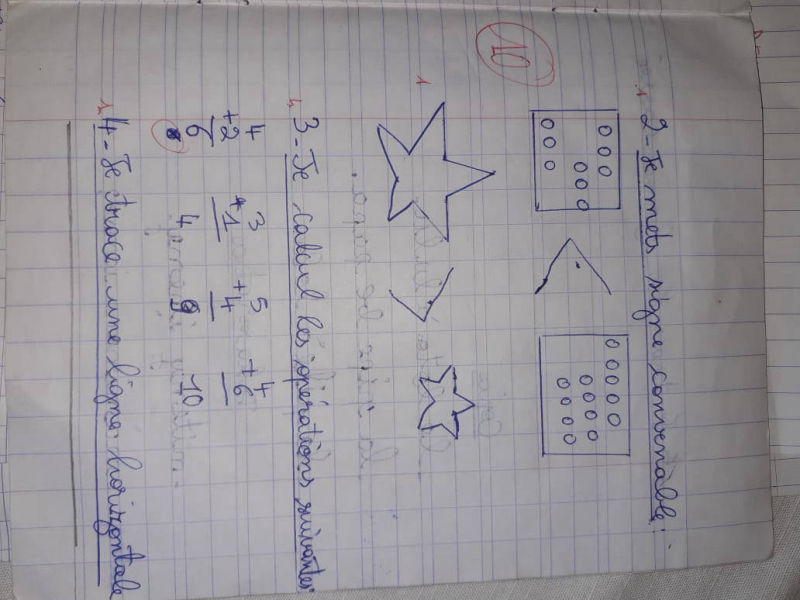 1 2-Je mets signe convenable:
10
<
1
>
4 3-Je calcul les opérations suivantes:
4 3 5 4
+2 +1 +4 +6
6 4 9 10
1 4-Je trace une ligne horizontale